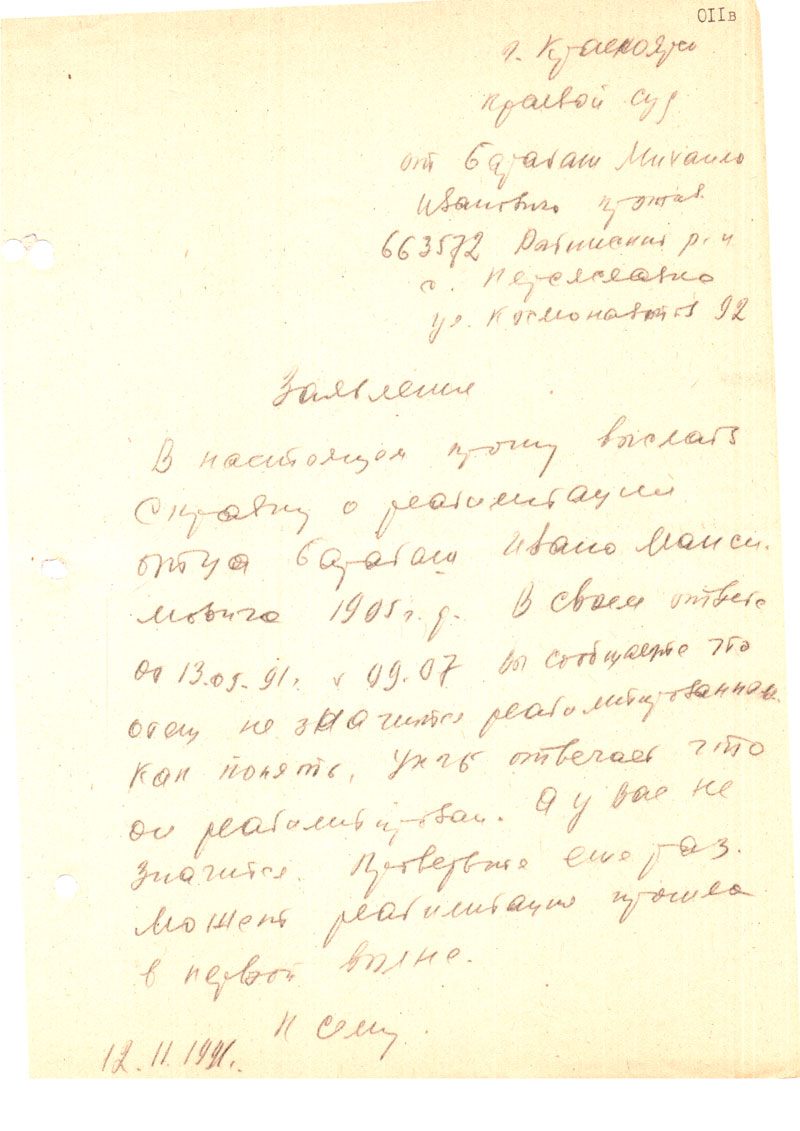 ОIIв
г. Красноярск
краевой суд
от Барабаш Михаила
Ивановича прожив.
663572 Рыбинский р-н
с. Переясловка
ул. Космонавтов 92
Заявление
В настоящем прошу выслать
Справку о реабилитации
отца Барабаш Ивана Макси
мовича 1905 г. р. В своем ответе
от 13.09.91г. 09.07 вы сообщаете что
отец не значится реабилитированным.
Как понять, отвечает что
он реабилитирован. А у вас не
значится. Проверьте еще раз.
Может реабилитация прошла
в первой волне.
К сему
12.11.1991.